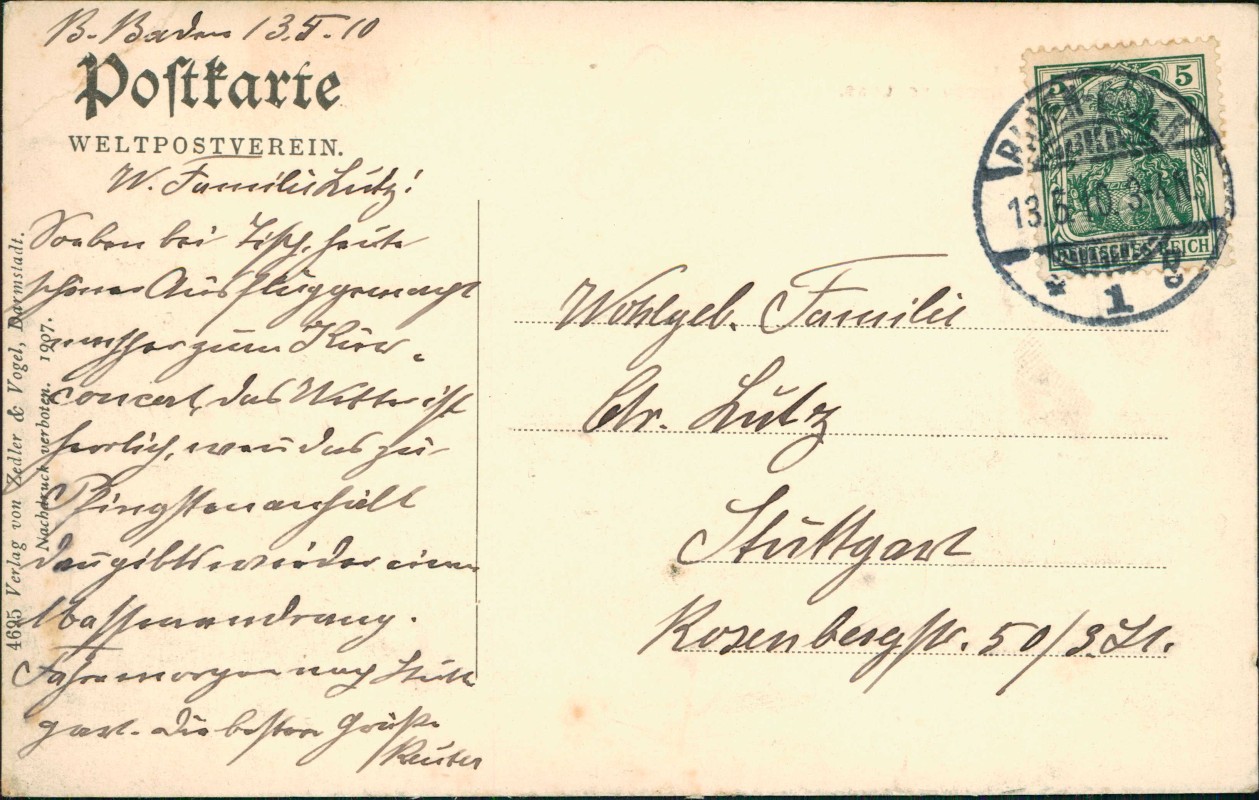 B. Baden 13.5.10
Postkarte
WELTPOSTVEREIN.
W. Familie Lutz!
Soeben bei Tisch, heute
schönen Ausflug gemacht
nachher zum Kur-
concert, das Wetter ist
herrlich, wen̄ das zu
Pfingsten anhält
dan̄ gibts wieder einen
Massenandrang.
Fahre morgen nach Stutt
gart. Die besten Grüße
Reuter
4695 Verlag von Zedler & Vogel, Darmstadt.
Nachdruck verboten. 1907.
5 5
DEUTSCHES REICH
BADEN-BADEN
13.5.10. 3-4N.
* 1 g
Wohlgeb. Familie
Chr. Lutz
Stuttgart
Rosenbergstr. 50/3. St.